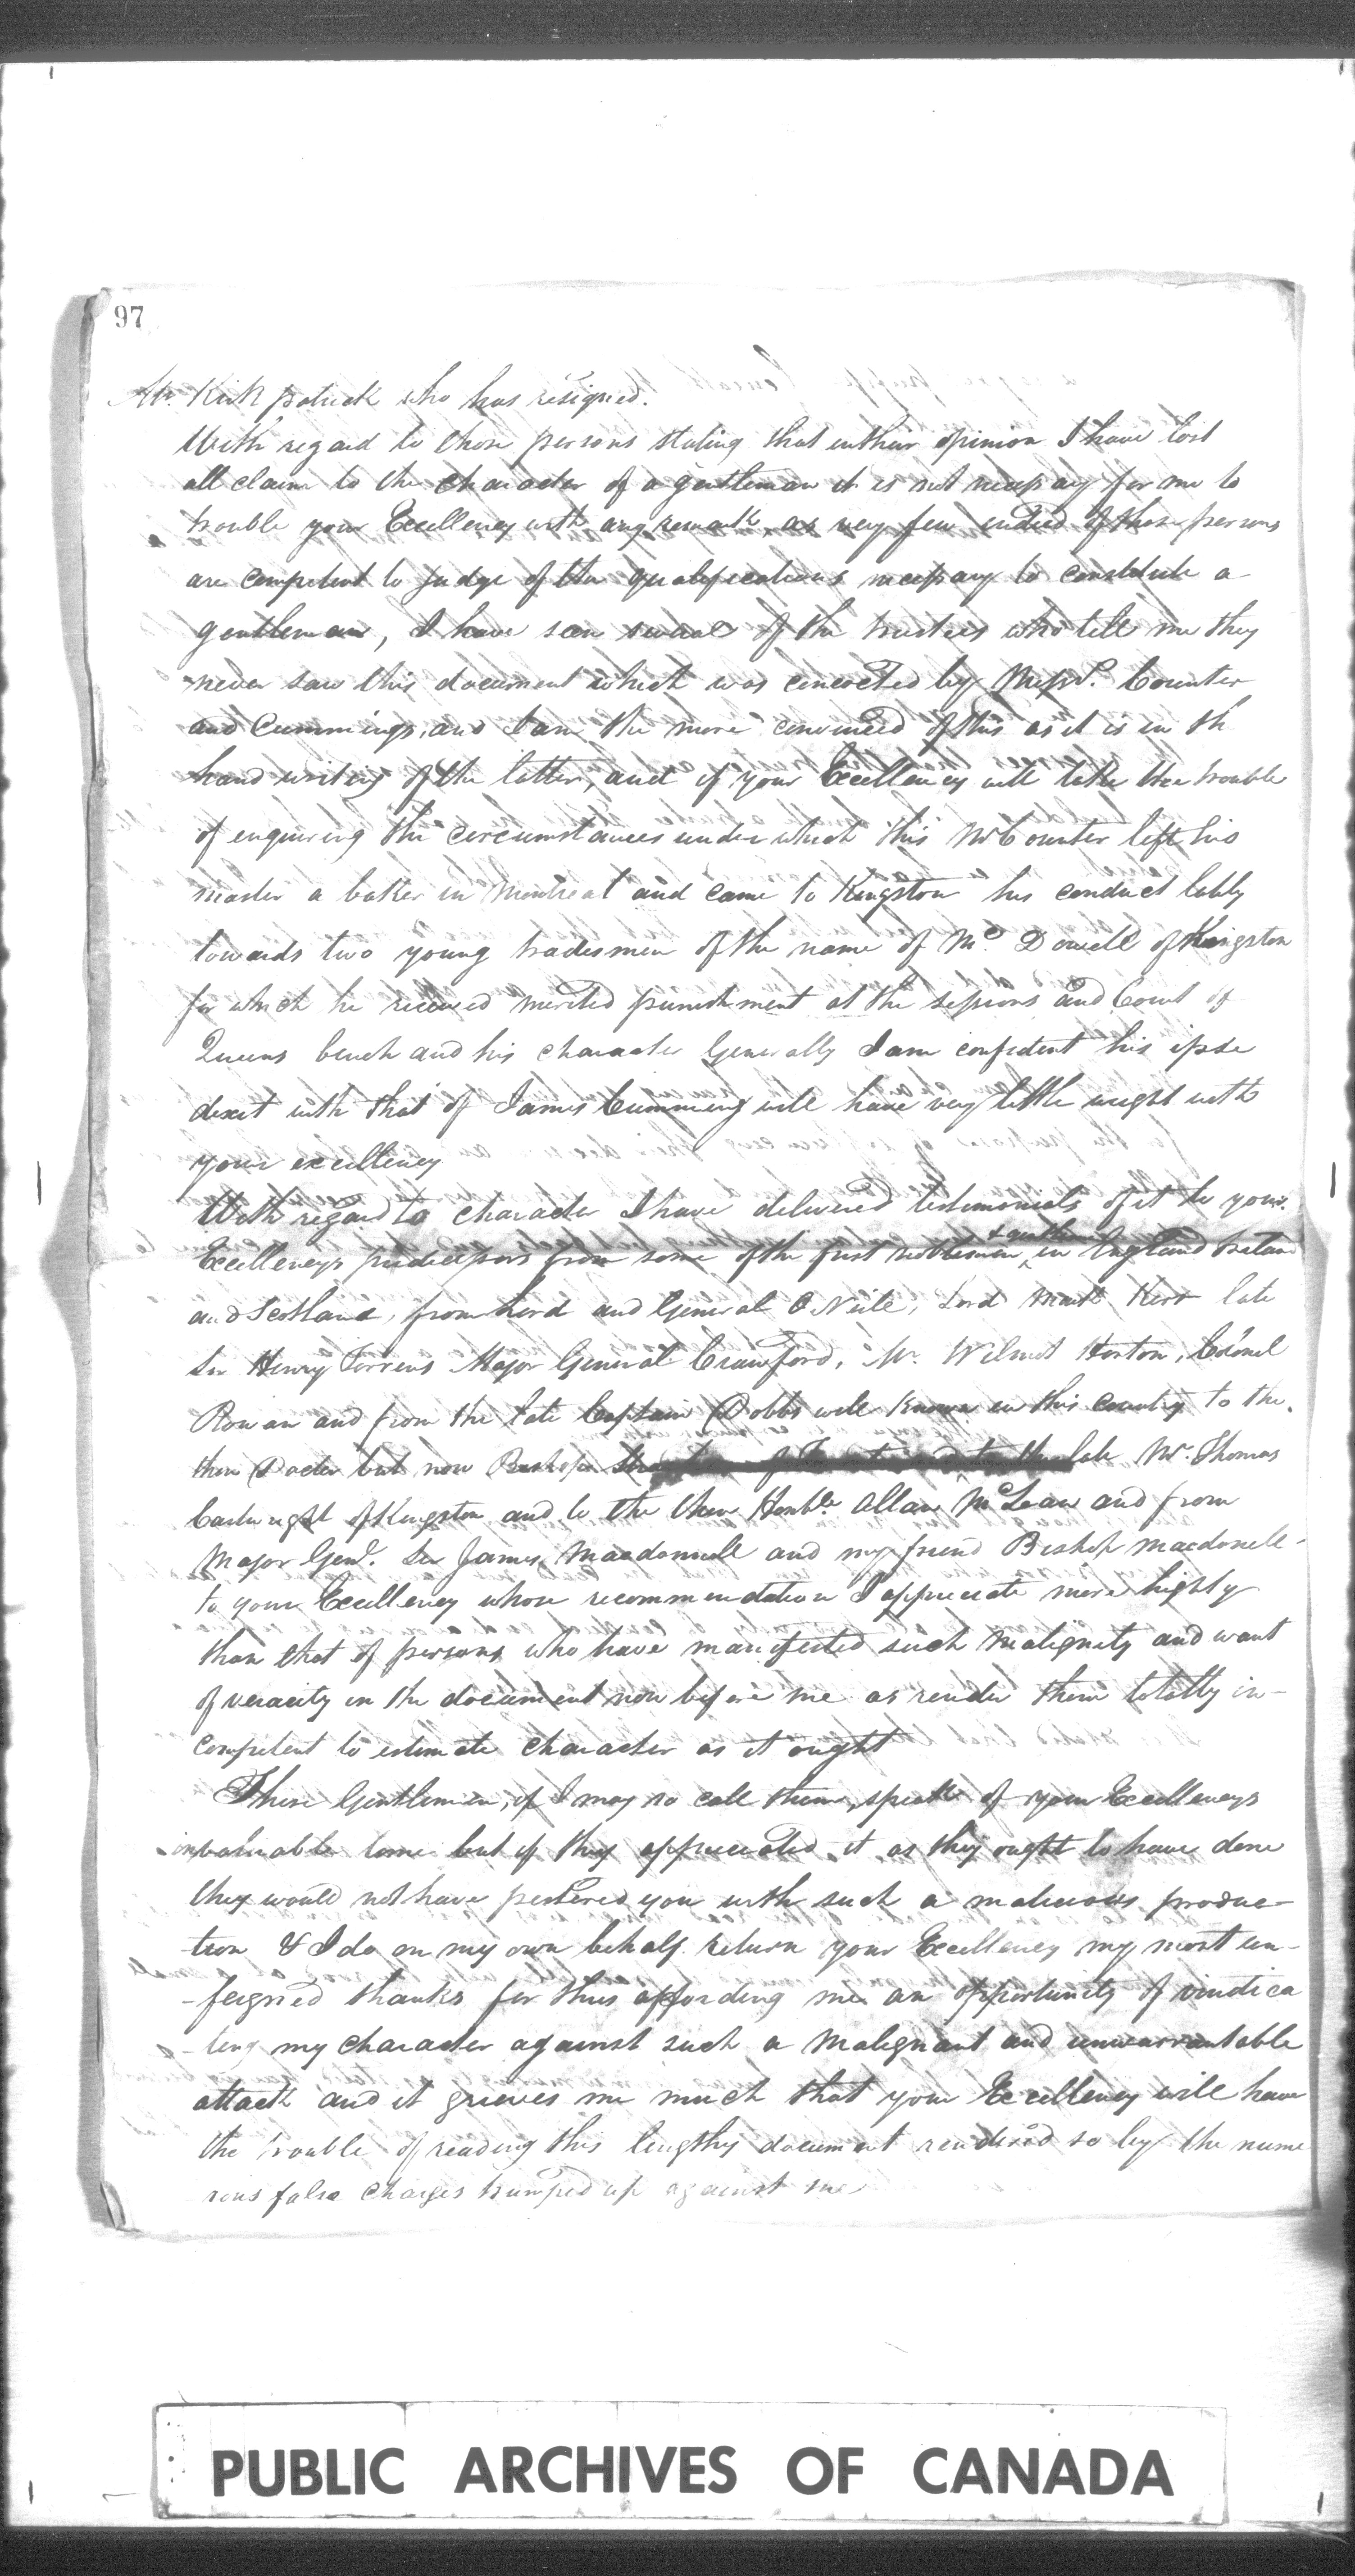 97
Mr. Kirkpatrick who has resigned.
With regard to those persons stating that in their opinion I have lost
all claim to the character of a gentleman it is not necessary for me to
trouble your Excellency with any remark, as very few indeed of those persons
are competent to judge of the qualifications necessary to constitute a
gentleman, I have seen several of the trustees who tell me they
never saw this document which was concocted by Messrs. Counter
and Cummings, and I am the more convinced of this as it is in th
hand writing of the latter, and if your Excellency will take the trouble
of enquiring the circumstances under which this Mr Counter left his
master a baker in Montreal and came to Kingston his conduct lately
towards two young tradesmen of the name of Mc Dowell of Kingston
for which he received merited punishment at the sessions and Court of
Queens bench and his character Generally I am confident his ipse
dixit with that of James Cumming will have very little weight with
your excellency
With regard to character I have delivered testimonials of it to your
Excellencys predecessors from some of the first noblemen & gentlemen in England Ireland
and Scotland, from Lord and General O Neile, Lord Mark Kerr late
Sir Henry Torrens Major General Crawford, Mr. Wilmot Horton, Colonel
Rowan and from the late Captain Dobbs well known in this country to the
then Doctor but now Bishop late Mr. Thomas
Cartwright of Kingston and to the then Honble. Allan McLean and from
Major Genl. Sir James Macdonnell and my friend Bishop Macdonell
to your Excellency whose recommendation I appreciate more highly
than that of persons who have manifested such malignity and want
of veracity in the document now before me as render them totally in-
competent to estimate character as it ought
These Gentlemen, if I may so call them, speak of your Excellencys
invaluable time but if they appreciated it as they ought to have done
they would not have pestered you with such a malicious produc-
tion & I do on my own behalf return your Excellency my most un-
-feigned thanks for thus affording me an opportunity of vindica
-ting my character against such a malignant and unwarrantable
attack and it grieves me much that your Excellency will have
the trouble of reading this lengthy document rendered so by the nume
rous false charges trumped up against me
PUBLIC ARCHIVES OF CANADA